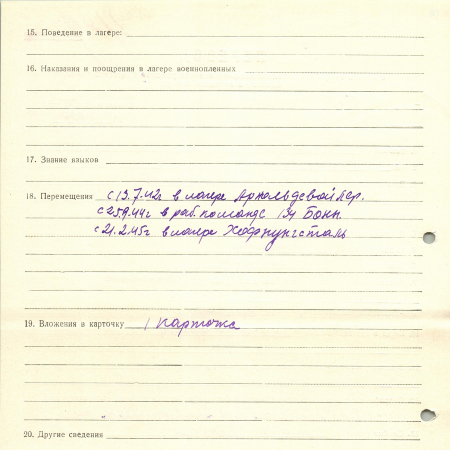 15. Поведение в лагере:
16. Наказания и поощрения в лагере военнопленных
17. Знание языков
18. Перемещения с 13.7.42г в лагере Арнольдсвайлер.
с 25.9.44г в раб. команде 134 Бонн
с 21.2.45г в лагере Хофнунгсталь
19. Вложения в карточку 1 карточка
20. Другие сведения